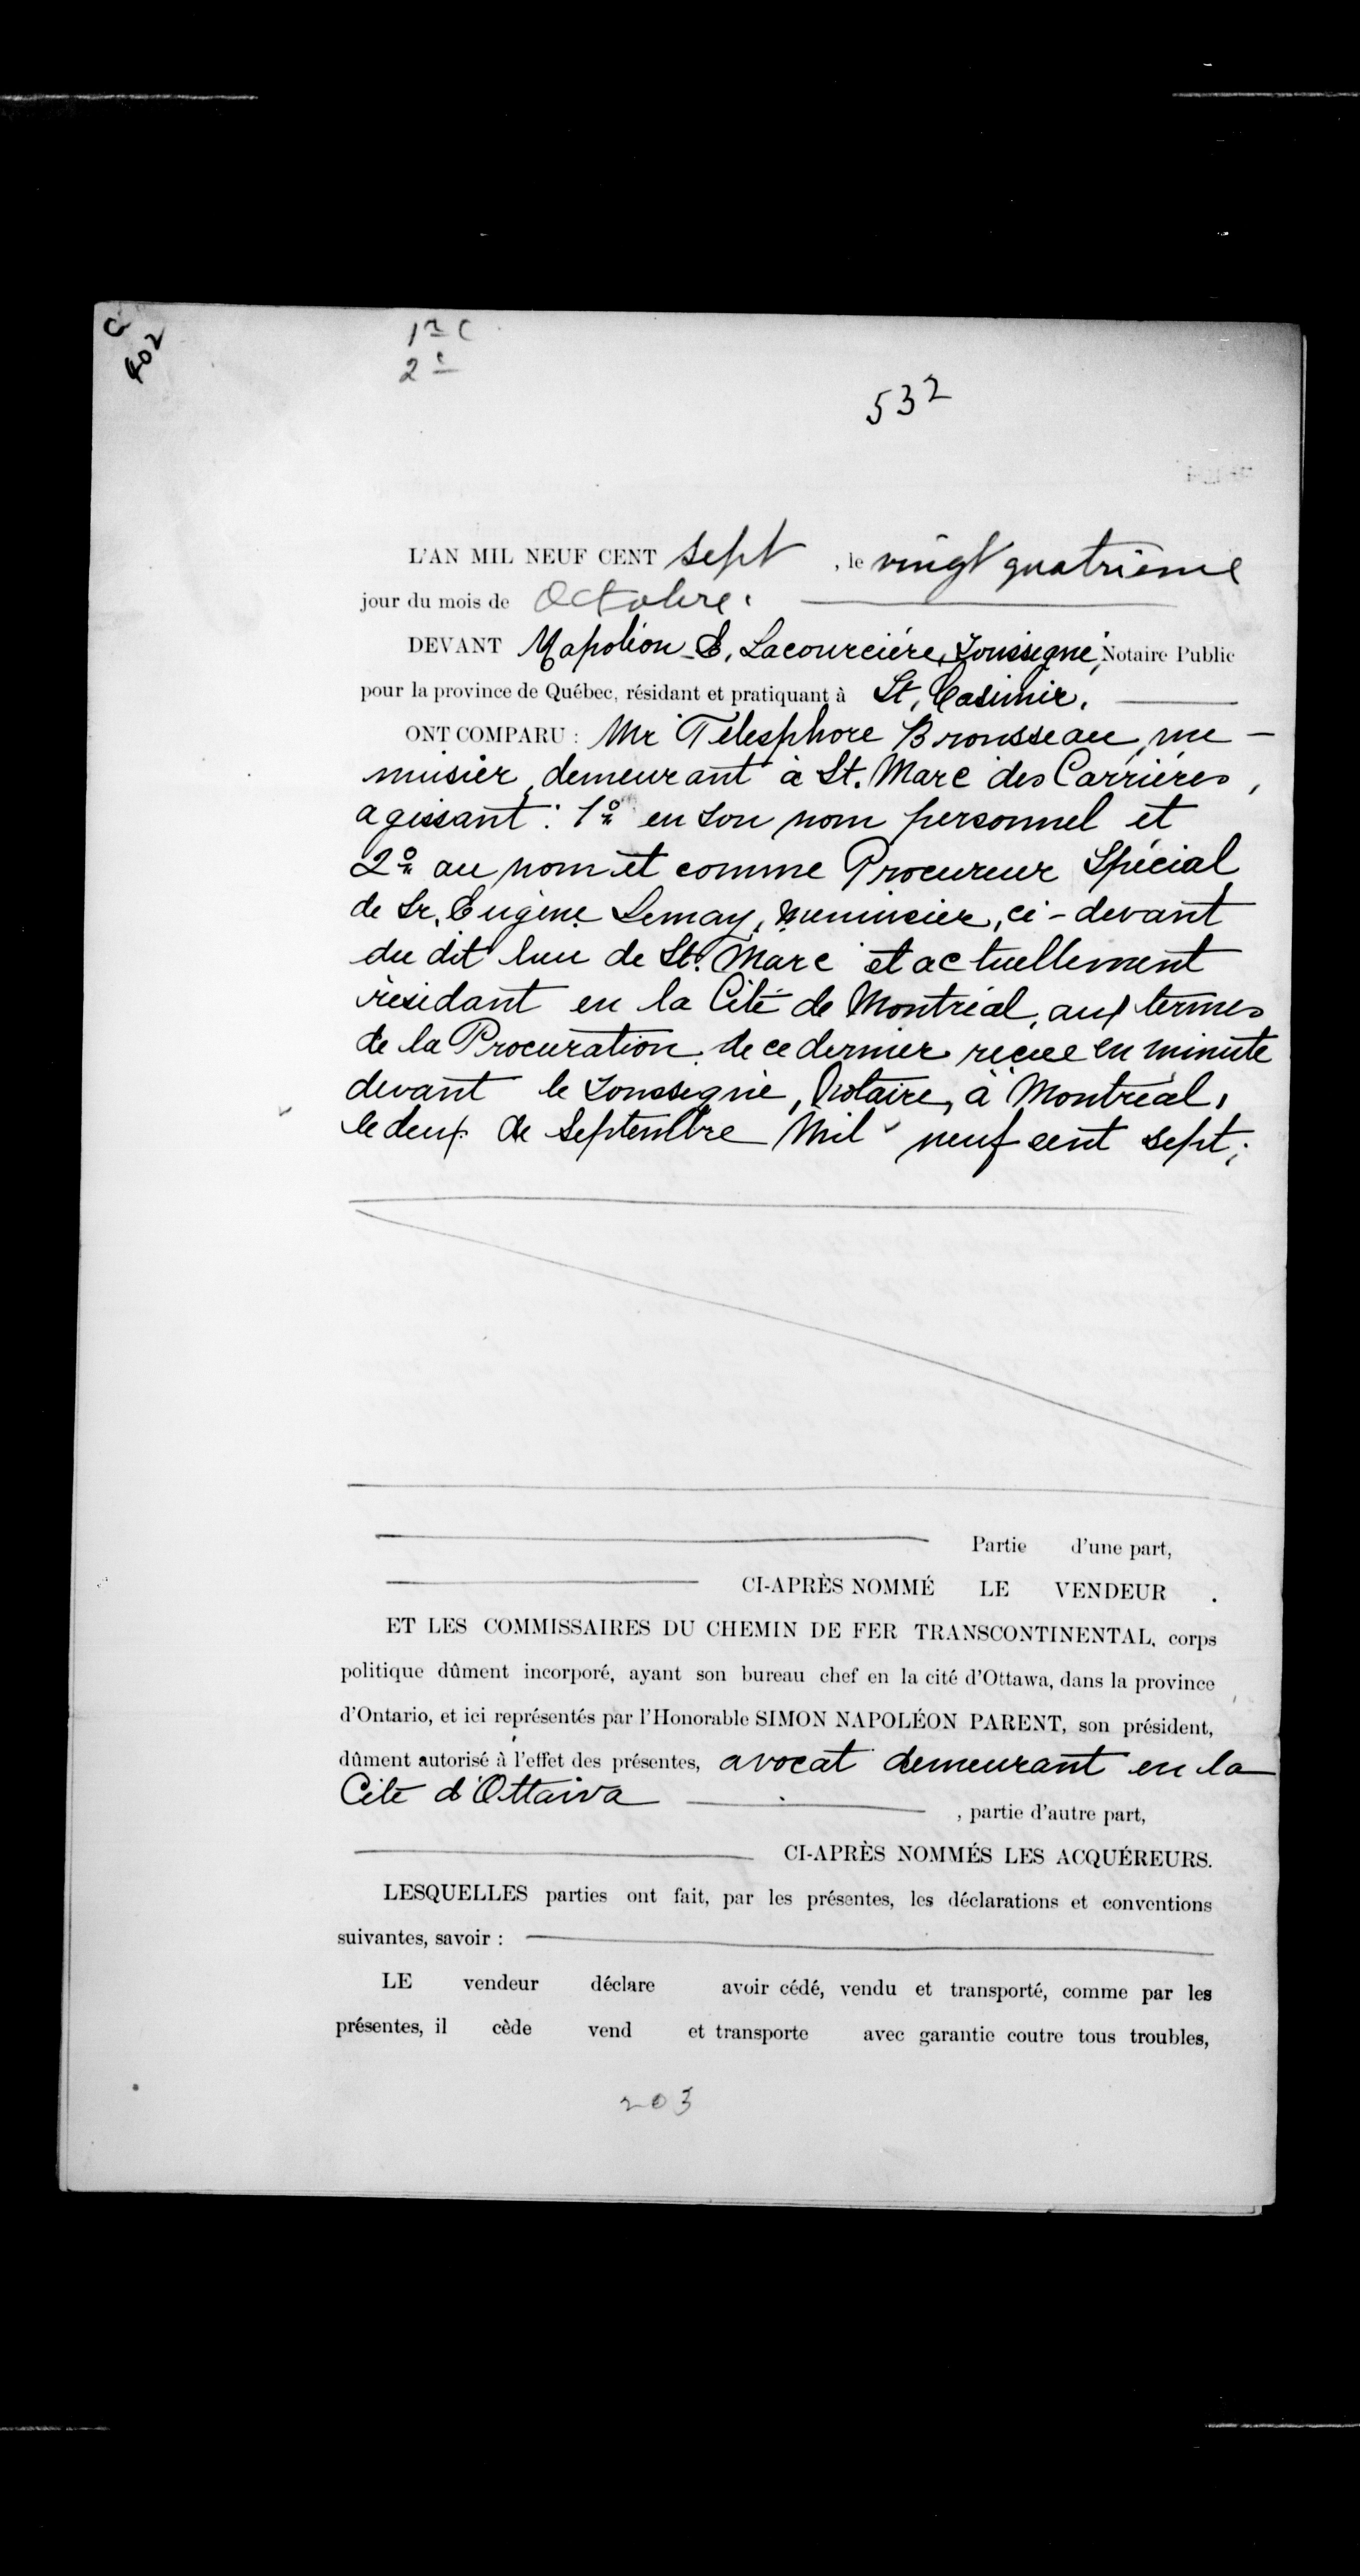 C
402
1º C
2º
532
L'AN MIL NEUF CENT sept , le vingt quatrième
jour du mois de Octobre.
DEVANT Napoléon E. Lacourcière, Soussigné, Notaire Public
pour la province de Québec, résidant et pratiquant à St, Casimir.
ONT COMPARU : Mr Télesphore Brousseau, me-
nuisier, demeurant à St. Marc des Carrières,
agissant : 1º en son nom personnel et
2º au nom et comme Procureur Spécial
de Sr. Eugène Lemay, menuisier, ci-devant
du dit lieu de St. Marc et actuellement
résidant en la Cité de Montréal, aux termes
de la Procuration de ce dernier reçue en minute
devant le soussigné, Notaire, à Montréal,
le deux de Septembre Mil neuf cent sept;
Partie d'une part,
CI-APRÈS NOMMÉ LE VENDEUR .
ET LES COMMISSAIRES DU CHEMIN DE FER TRANSCONTINENTAL, corps
politique dûment incorporé, ayant son bureau chef en la cité d'Ottawa, dans la province
d'Ontario, et ici représentés par l'Honorable SIMON NAPOLÉON PARENT, son président,
dûment autorisé à l'effet des présentes, avocat demeurant en la
Cité d'Ottawa , partie d'autre part,
CI-APRÈS NOMMÉS LES ACQUÉREURS.
LESQUELLES parties ont fait, par les présentes, les déclarations et conventions
suivantes, savoir :
LE vendeur déclare avoir cédé, vendu et transporté, comme par les
présentes, il cède vend et transporte avec garantie coutre tous troubles,
203